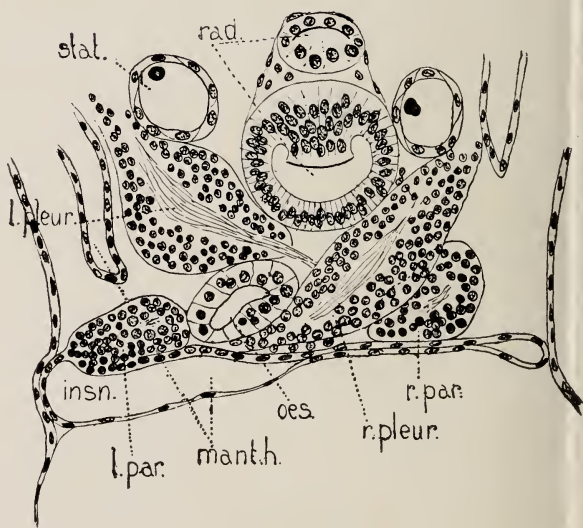 stat.
rad.
l.pleur.
insn.
l.par.
mant.h.
oes.
r.pleur.
r.par.